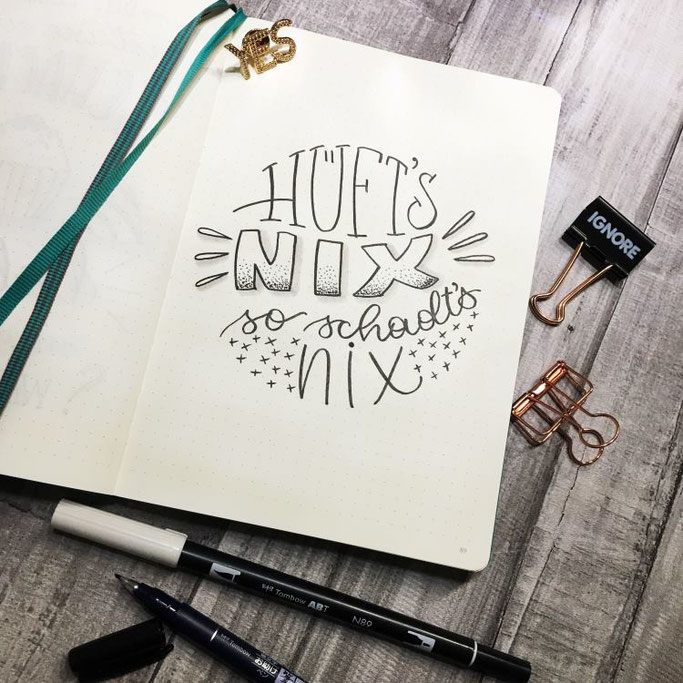 YES
HÜFT'S
NIX
so schadt's
nix
IGNORE
Tombow ABT
N89
Tombow